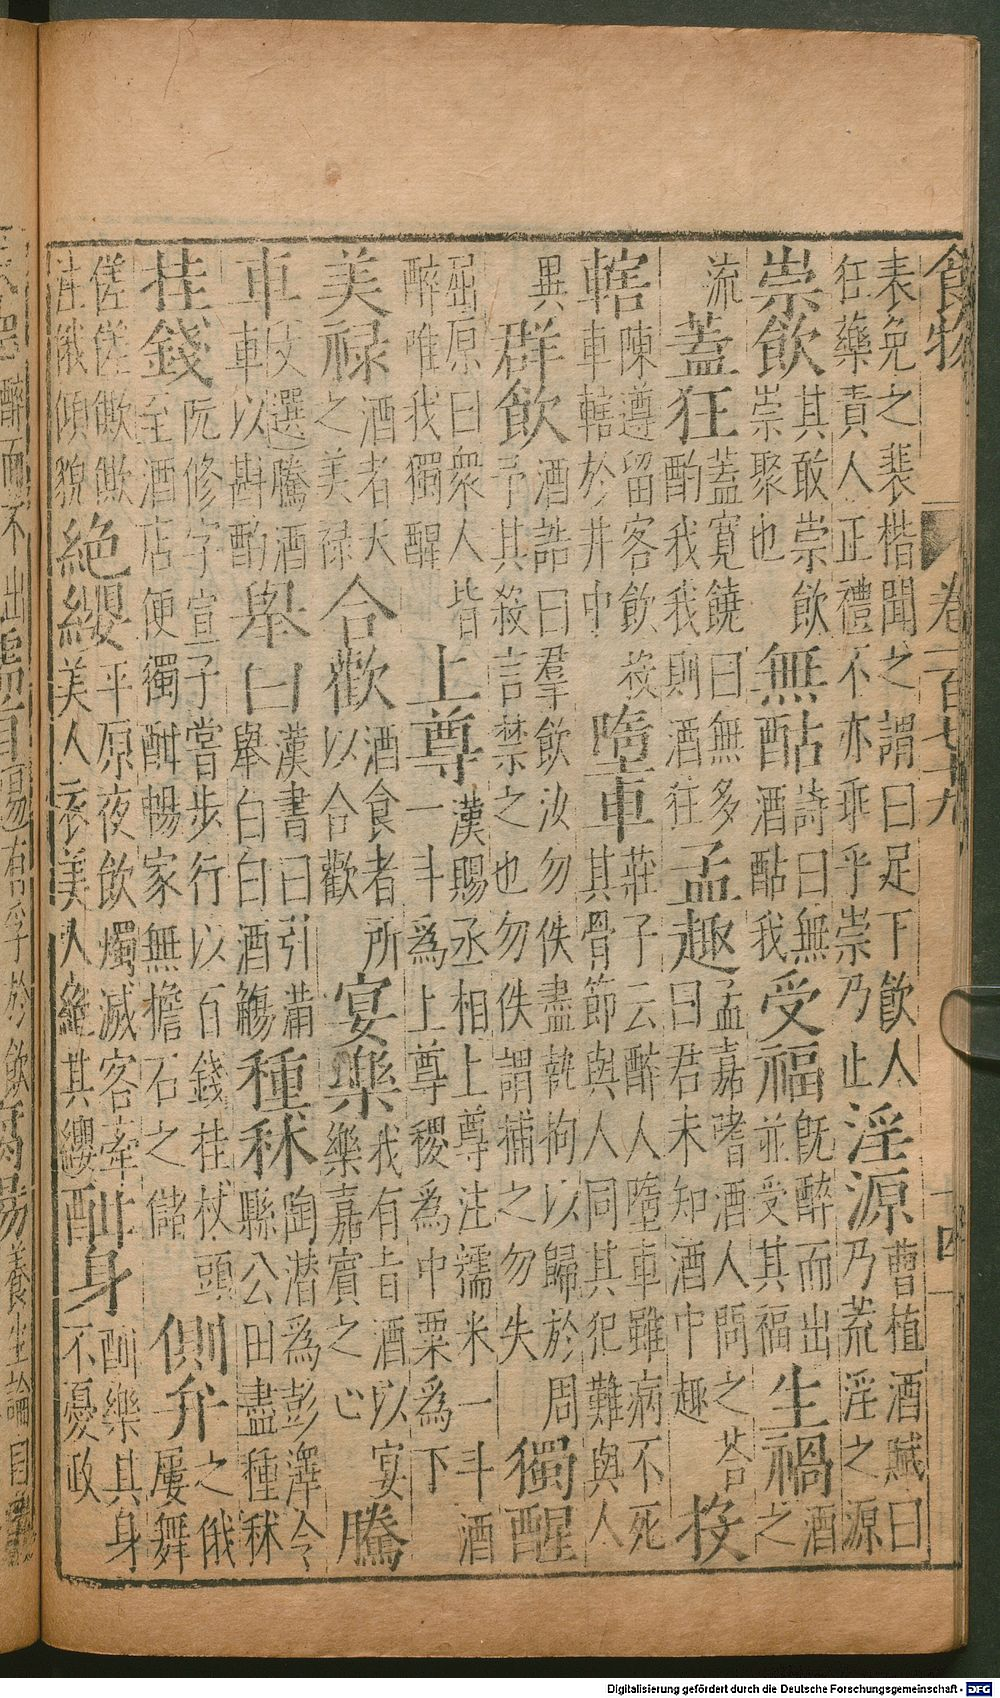 食物 卷一百七十九 十四
表免之裴楷聞之謂曰足下飲人狂藥責人正禮不亦乖乎崇乃止 淫源 曹植酒賦曰乃荒淫之源
崇飲 其敢崇飲崇聚也 無酤 詩曰無酒酤我 受福 既醉而出並受其福 生禍 酒之
流 蓋狂 蓋寬饒曰無多酌我我則酒狂 孟趣 孟嘉嗜酒人問之荅曰君未知酒中趣 投
轄 陳遵留客飲投車轄於井中 墮車 莊子云醉人墮車雖病不死其骨節與人同其犯難與人
異 群飲 酒誥曰羣飲汝勿佚盡執拘以歸於周予其殺言禁之也勿佚謂捕之勿失 獨醒
屈原曰衆人皆醉唯我獨醒 上尊 漢賜丞相上尊注糯米一斗酒一斗爲上尊稷爲中粟爲下
美祿 酒者天之美祿 合歡 酒食者所以合歡 宴樂 我有旨酒以宴樂嘉賓之心 騰
車 文選騰酒車以斟酌 舉曰 漢書曰引滿舉白白酒觴 種秫 陶潛爲彭澤令縣公田盡種秫
桂錢 阮修字宣子嘗步行以百錢桂杖頭至酒店便獨酣暢家無擔石之儲 側弁 之俄屢舞
傞傞僛僛注俄傾貌 絕纓 平原夜飲燭滅客牽美人衣美人絕其纓 酣身 酣樂其身不憂政
Digitalisierung gefördert durch die Deutsche Forschungsgemeinschaft - DFG